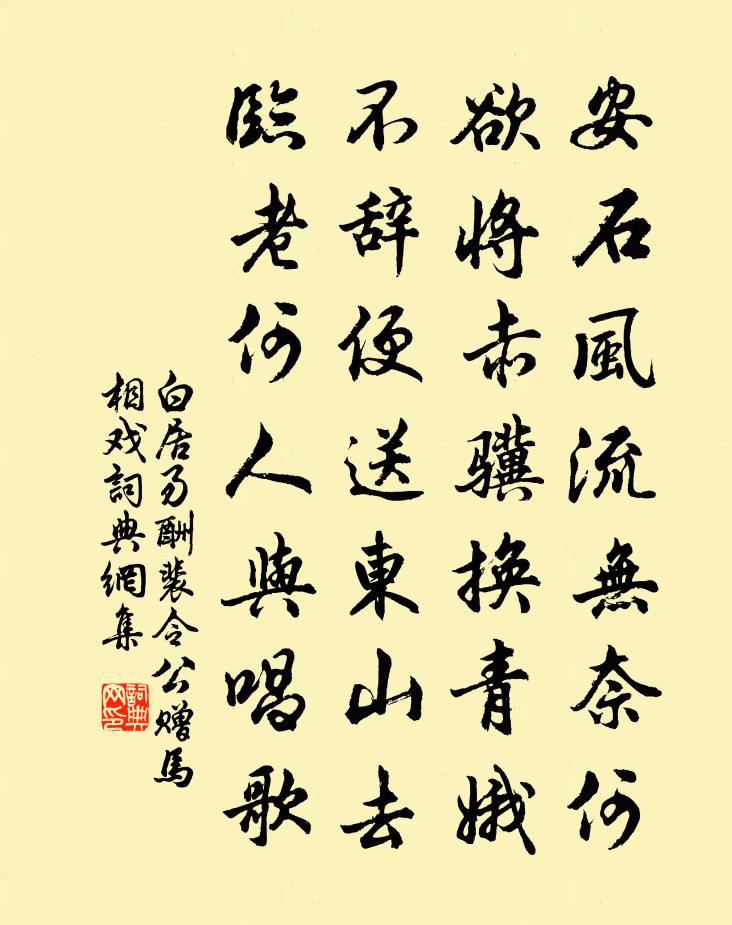 安石風流無奈何
欲将赤骥換青娥
不辞便送東山去
臨老何人與唱歌
白居易酬裴令公赠馬
相戏詞典網集
詞典网印